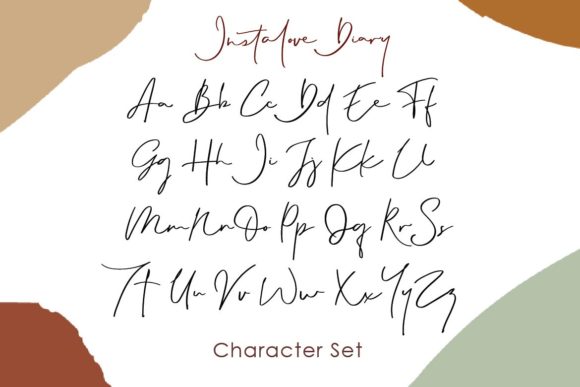 Instalove Diary
Aa Bb Cc Dd Ee Ff
Gg Hh Ii Jj Kk Ll
Mm Nn Oo Pp Qq Rr Ss
Tt Uu Vv Ww Xx Yy Zz
Character Set